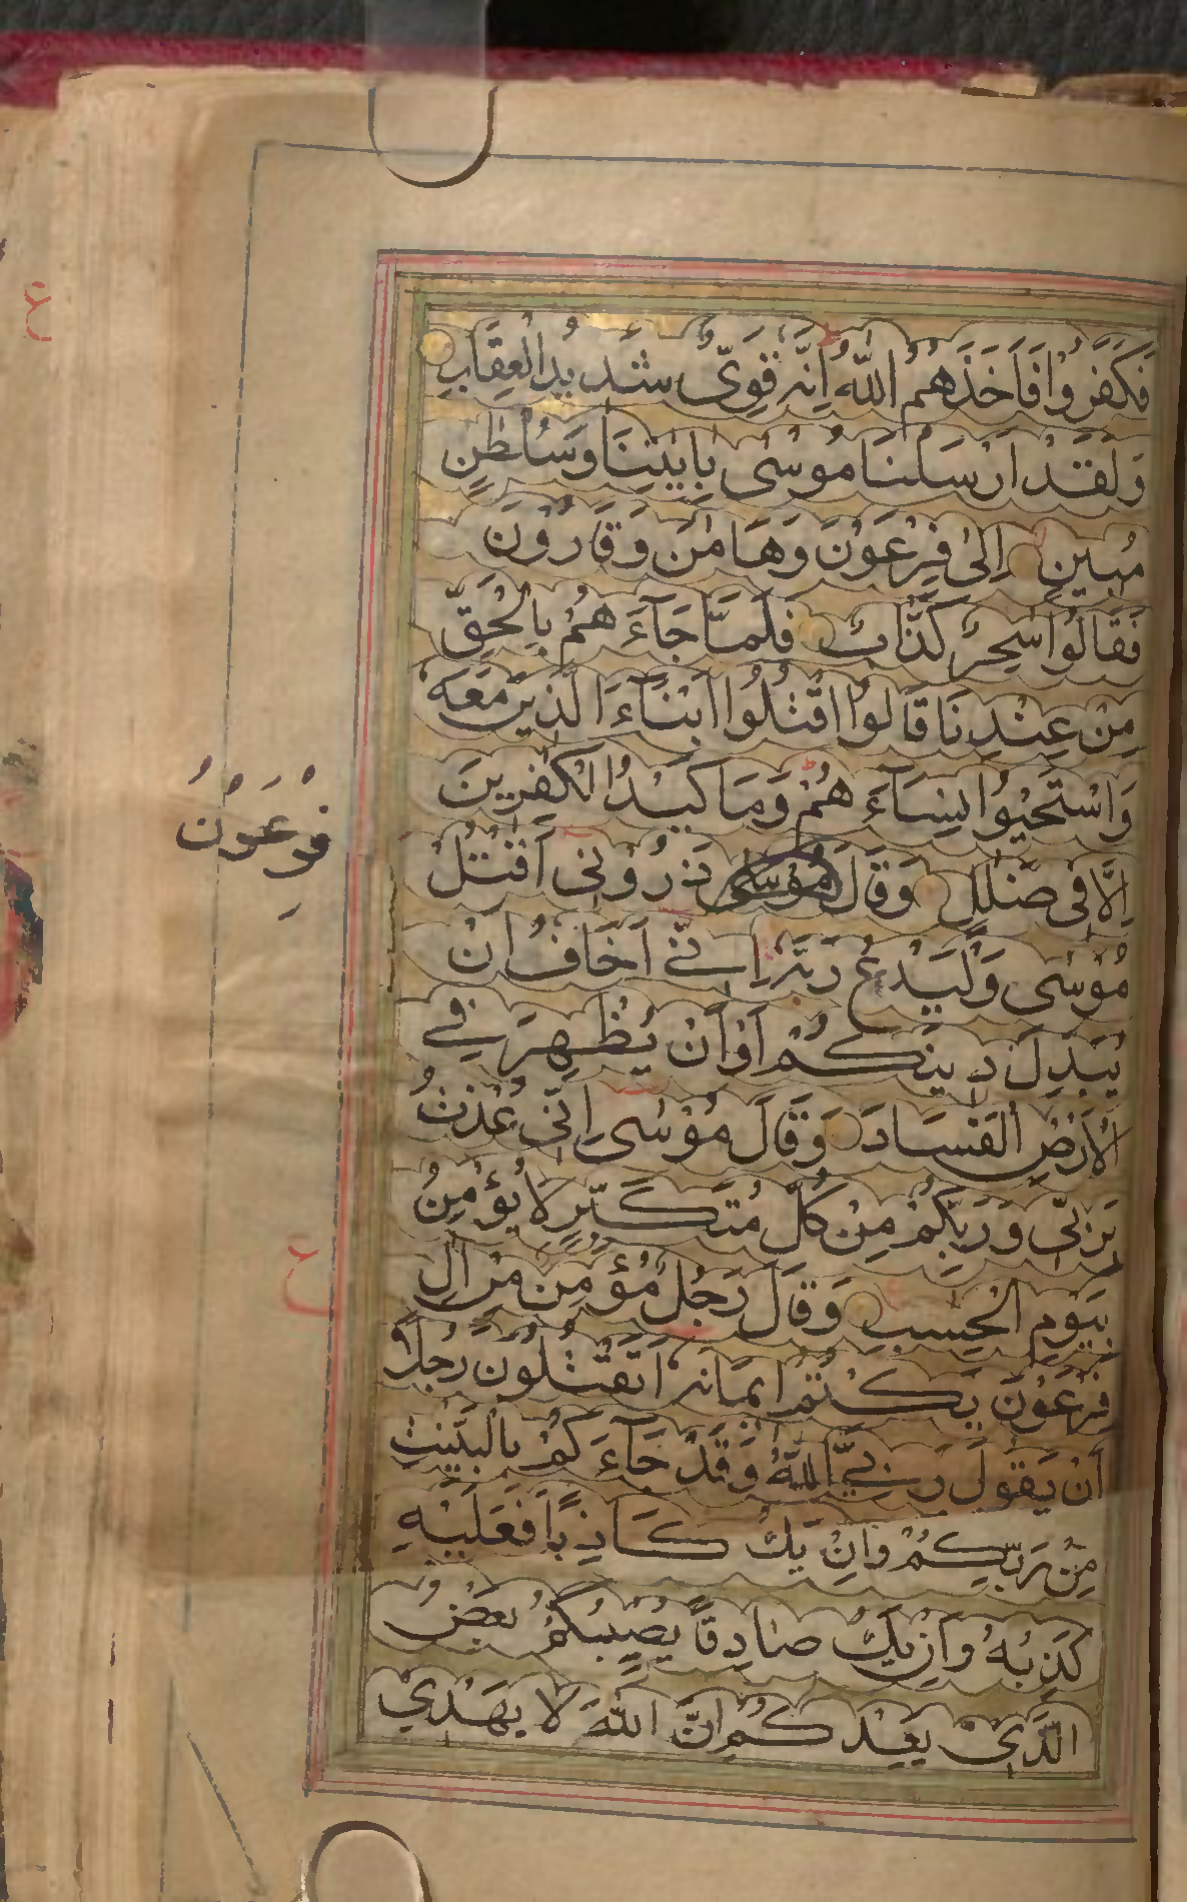 فَكَفَرُوا فَاَخَذَهُمُ اللّٰهُ اِنَّهٗ قَوِىٌّ شَدِيْدُ الْعِقَابِ
وَلَقَدْ اَرْسَلْنَا مُوْسٰى بِاٰيٰتِنَا وَسُلْطٰنٍ
مُبِيْنٍ اِلٰى فِرْعَوْنَ وَهَامٰنَ وَقَارُوْنَ
فَقَالُوْا سٰحِرٌ كَذَّابٌ فَلَمَّا جَآءَهُمْ بِالْحَقِّ
مِنْ عِنْدِنَا قَالُوا اقْتُلُوْا اَبْنَآءَ الَّذِيْنَ مَعَهٗ
وَاسْتَحْيُوْا نِسَآءَهُمْ وَمَا كَيْدُ الْكٰفِرِيْنَ
اِلَّا فِى ضَلٰلٍ وَقَالَ مُوْسٰى ذَرُوْنِى اَقْتُلْ
فِرْعَوْنُ
مُوْسٰى وَلْيَدْعُ رَبَّهٗ اِنِّے اَخَافُ اَنْ
يُبَدِّلَ دِيْنَكُمْ اَوْ اَنْ يُظْهِرَ فِے
الْاَرْضِ الْفَسَادَ وَقَالَ مُوْسٰى اِنِّى عُذْتُ
بِرَبِّى وَرَبِّكُمْ مِنْ كُلِّ مُتَكَبِّرٍ لَا يُؤْمِنُ
بِيَوْمِ الْحِسَابِ وَقَالَ رَجُلٌ مُؤْمِنٌ مِنْ اٰلِ
فِرْعَوْنَ يَكْتُمُ اِيْمَانَهٗ اَتَقْتُلُوْنَ رَجُلًا
اَنْ يَقُوْلَ رَبِّيَ اللّٰهُ وَقَدْ جَآءَكُمْ بِالْبَيِّنٰتِ
مِنْ رَبِّكُمْ وَاِنْ يَكُ كَاذِبًا فَعَلَيْهِ
كَذِبُهٗ وَاِنْ يَكُ صَادِقًا يُصِبْكُمْ بَعْضُ
الَّذِىْ يَعِدُكُمْ اِنَّ اللّٰهَ لَا يَهْدِيْ
ع
ع